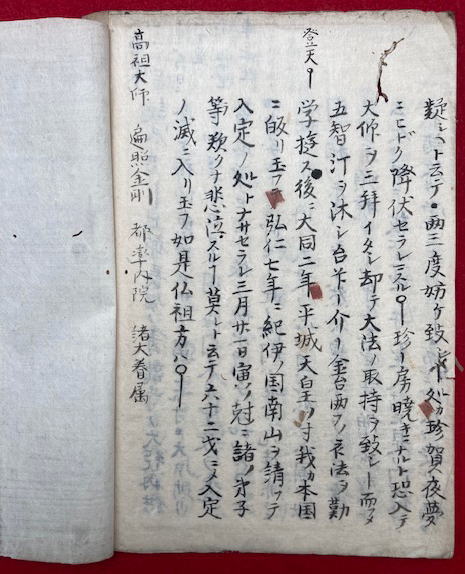 疑シヘト云テ・両三度妨ケ致シ処カ珍賀夜夢
ニヒドク降伏セラレニスル 珍 房 暁キニナルト恐入テ
大師ヲ三拝イタシ却テ大法ノ取持ヲ致シ 而メ
五智 ヲ沐シ 金台両 衣法ヲ勤
学 ス後ニ大同二年平城天皇 寸我カ本国
ニ皈リ玉フテ弘仁七年ニ紀伊ノ国南山ヲ請ツテ
入定ノ処トナサセラレ三月廿一日寅ノ尅ニ諸ノ弟子
等歎クナ悲泣スル 莫レト云テ六十二戈ニメ入定
ノ滅ニ入リ玉フ如是仏祖方ハ
登天
高祖大師 遍照金剛 都率内院 諸大眷属